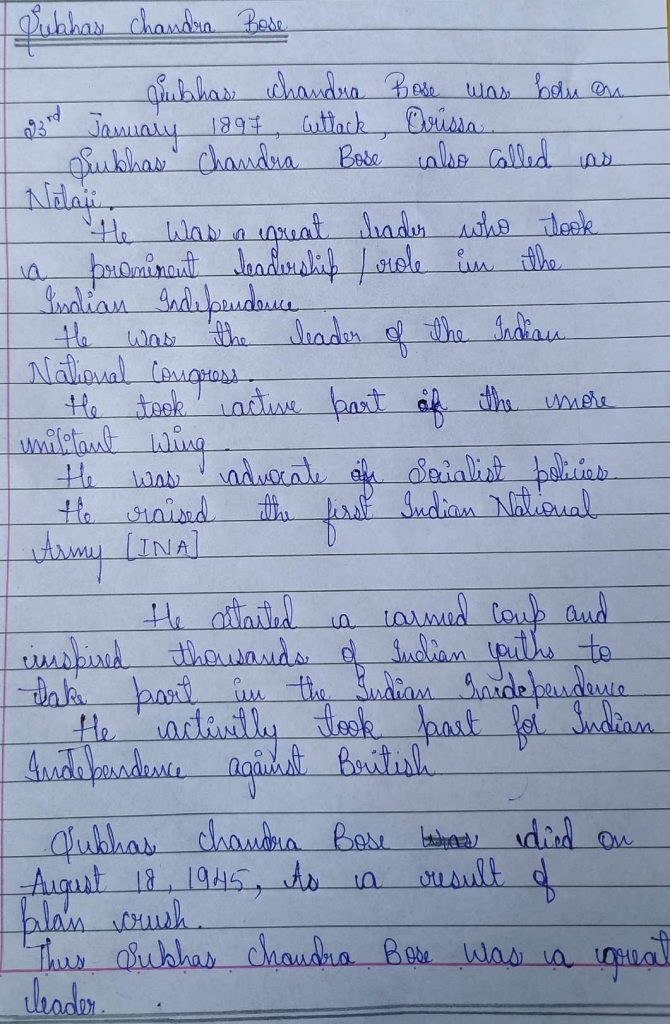 Subhas Chandra Bose
Subhas Chandra Bose was born on
23rd January 1897, Cuttack, Orissa.
Subhas Chandra Bose also Called as
Netaji.
He Was a great leader who took
a prominent leadership / role in the
Indian Independence
He was the leader of the Indian
National Congress.
He took active part of the more
militant Wing.
He was advocate of Socialist policies
He raised the first Indian National
Army [INA]
He started a armed coup and
inspired thousands of Indian youths to
take part in the Indian Inidependence
He activitly took part for Indian
Independence against British
Subhas Chandra Bose was died on
August 18, 1945, As a result of
plan crush.
Thus Subhas Chandra Bose was a great
leader.